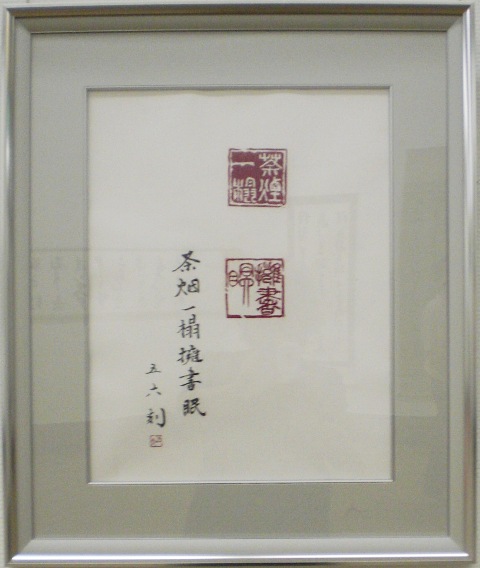 茶煙
一榻
擁書
眠
茶烟一榻擁書眠
五六刻